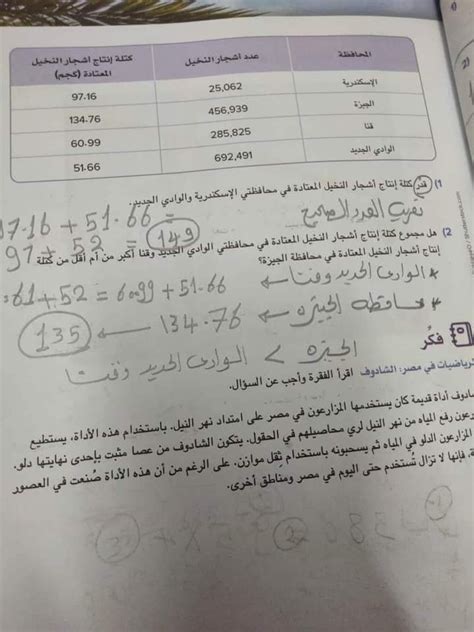 المحافظة عدد أشجار النخيل كتلة إنتاج أشجار النخيل المعتادة (كجم)
الإسكندرية 25,062 97.16
الجيزة 456,939 134.76
قنا 285,825 60.99
الوادي الجديد 692,491 51.66
1) قدر كتلة إنتاج أشجار النخيل المعتادة في محافظتي الإسكندرية والوادي الجديد.
تقريب العدد الصحيح
97.16 + 51.66 =
97 + 52 = 149
2) هل مجموع كتلة إنتاج أشجار النخيل المعتادة في محافظتي الوادي الجديد وقنا أكبر من أم أقل من كتلة
إنتاج أشجار النخيل المعتادة في محافظة الجيزة؟
* الوادى الجديد وقنا
61+52 = 60.99 + 51.66
* محافظة الجيزة ← 134.76 ← 135
الجيزة > الوادى الجديد وقنا
فكّر
الرياضيات في مصر: الشادوف اقرأ الفقرة وأجب عن السؤال.
الشادوف أداة قديمة كان يستخدمها المزارعون في مصر على امتداد نهر النيل. باستخدام هذه الأداة، يستطيع
المزارعون رفع المياه من نهر النيل لري محاصيلهم في الحقول. يتكون الشادوف من عصا مثبت بإحدى نهايتها دلو.
المزارعون الدلو في الماء ثم يسحبونه باستخدام ثقل موازن. على الرغم من أن هذه الأداة صُنعت في العصور
فإنها لا تزال تُستخدم حتى اليوم في مصر ومناطق أخرى.